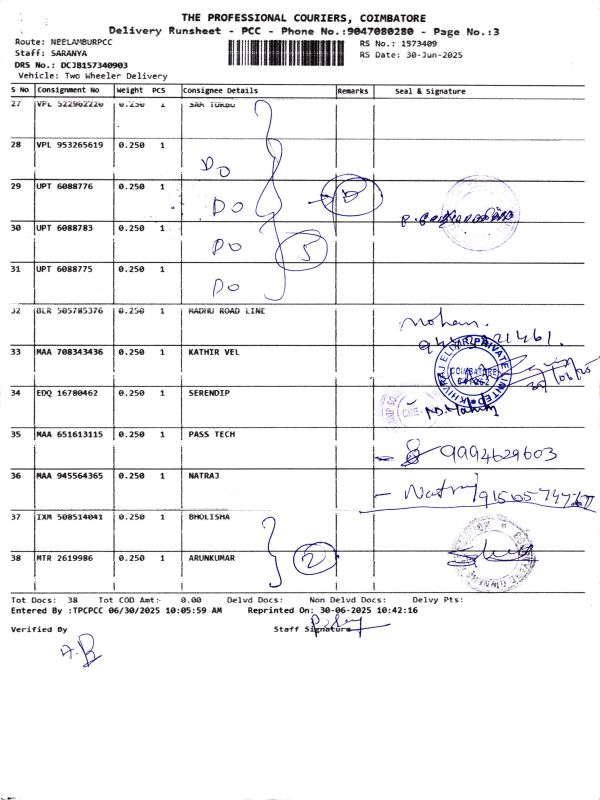 THE PROFESSIONAL COURIERS, COIMBATORE
Delivery Runsheet - PCC - Phone No.:9047080280 - Page No.:3
Route: NEELAMBURPCC
RS No.: 1573409
Staff: SARANYA
RS Date: 30-Jun-2025
DRS No.: DCJB157340903
Vehicle: Two Wheeler Delivery
S No Consignment No Weight PCS Consignee Details Remarks Seal & Signature
27 VPL 522962220 0.250 1 SAM TURBO
28 VPL 953265619 0.250 1
DO
29 UPT 6088776 0.250 1
DO
30 UPT 6088783 0.250 1
DO 5
31 UPT 6088775 0.250 1
DO
32 BLR 505785376 0.250 1 MADHU ROAD LINE
Mohan.
33 MAA 708343436 0.250 1 KATHIR VEL
COIMBATORE
34 EDQ 16780462 0.250 1 SERENDIP
35 MAA 651613115 0.250 1 PASS TECH
9994629603
36 MAA 945564365 0.250 1 NATRAJ
- Natraj
37 IXM 508514041 0.250 1 BHOLISHA
38 MTR 2619986 0.250 1 ARUNKUMAR
2
Tot Docs: 38 Tot COD Amt:- 0.00 Delvd Docs: Non Delvd Docs: Delvy Pts:
Entered By :TPCPCC 06/30/2025 10:05:59 AM Reprinted On: 30-06-2025 10:42:16
Verified By Staff Signature